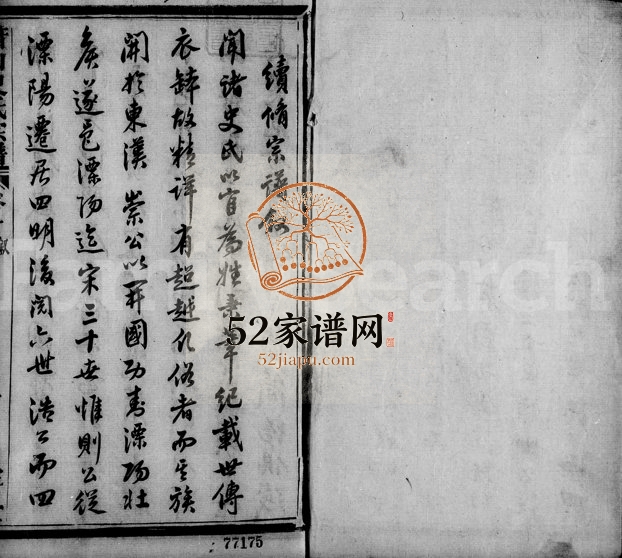 續脩宗譜敘
聞諸史氏以官為姓秉筆紀載世傳
衣缽故精詳有超越凡俗者而其族
開於東漢崇公以開國功封溧陽壯
矦遂邑溧陽迄宋三十世惟則公從
溧陽遷居四明後閱六世浩公而四
52家谱网
52jiapu.com
77175